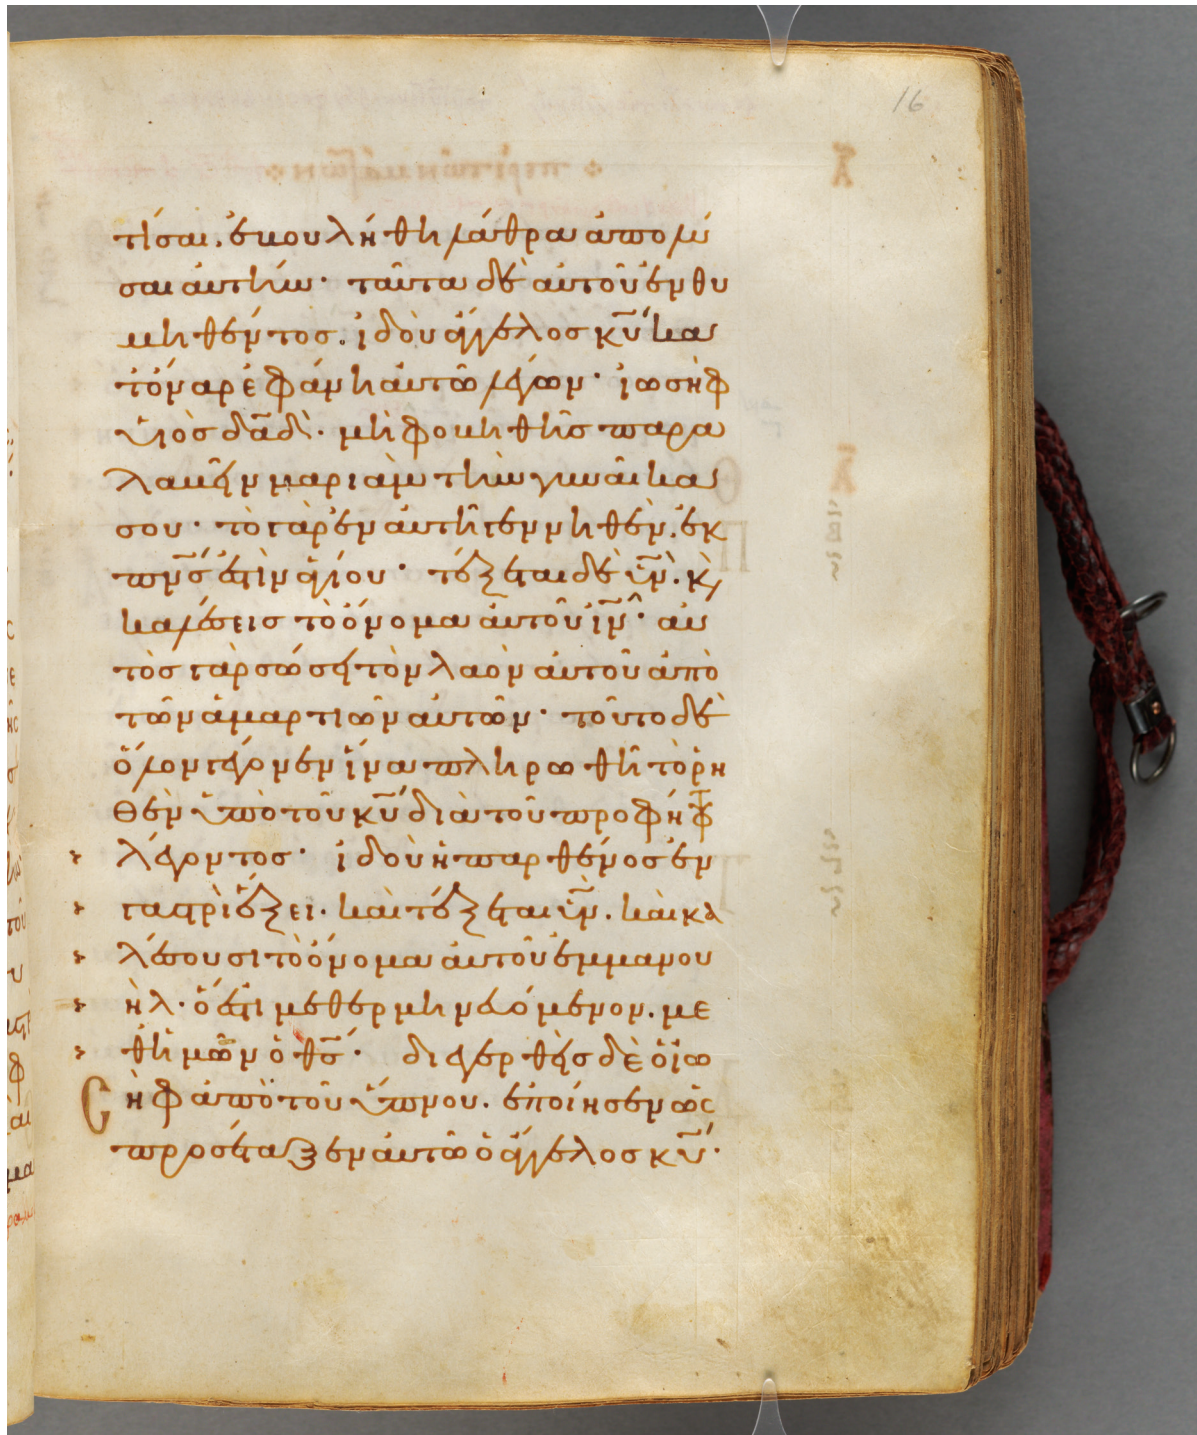 16
τίσαι. ἐβουλήθη λάθρα ἀπολύ
σαι αὐτήν· ταῦτα δὲ αὐτοῦ ἐνθυ
μηθέντος. ἰδοὺ ἄγγελος κ̅υ̅ κα
τόναρ ἐφάνη αὐτῶ λέγων· ἰωσὴφ
υἱὸς δ̅α̅δ̅· μὴ φοβηθῆς παρα
λαβεῖν μαριὰμ τὴν γυναῖκα
σου· τὸ γὰρ ἐν αὐτῆ γεννηθὲν. ἐκ
π̅ν̅ς̅ ἐστὶν ἁγίου· τέξεται δὲ υ̅ν̅. κ̀
καλέσεις τὸ ὄνομα αὐτοῦ ι̅ν̅· αὐ
τὸς γὰρ σώσει τὸν λαὸν αὐτοῦ ἀπὸ
τῶν ἁμαρτιῶν αὐτῶν· τοῦτο δὲ
ὅλον γέγονεν ἵνα πληρωθῆ τὸ ῥη
θὲν ὑπὸ τοῦ κ̅υ̅ διὰ τοῦ προφήτ
λέγοντος· ἰδοὺ ἡ παρθένος ἐν
γαστρὶ ἕξει. καὶ τέξεται υ̅ν̅. καὶ κα
λέσουσι τὸ ὄνομα αὐτοῦ ἐμμανου
ὴλ· ὅ ἐστι μεθερμηνευόμενον. με
θ' ἡμῶν ὁ θ̅ς̅· διεγερθεὶς δὲ ὁ ἰω
σὴφ ἀπὸ τοῦ ὕπνου. ἐποίησεν ὡς
προσέταξεν αὐτῶ ὁ ἄγγελος κ̅υ̅·